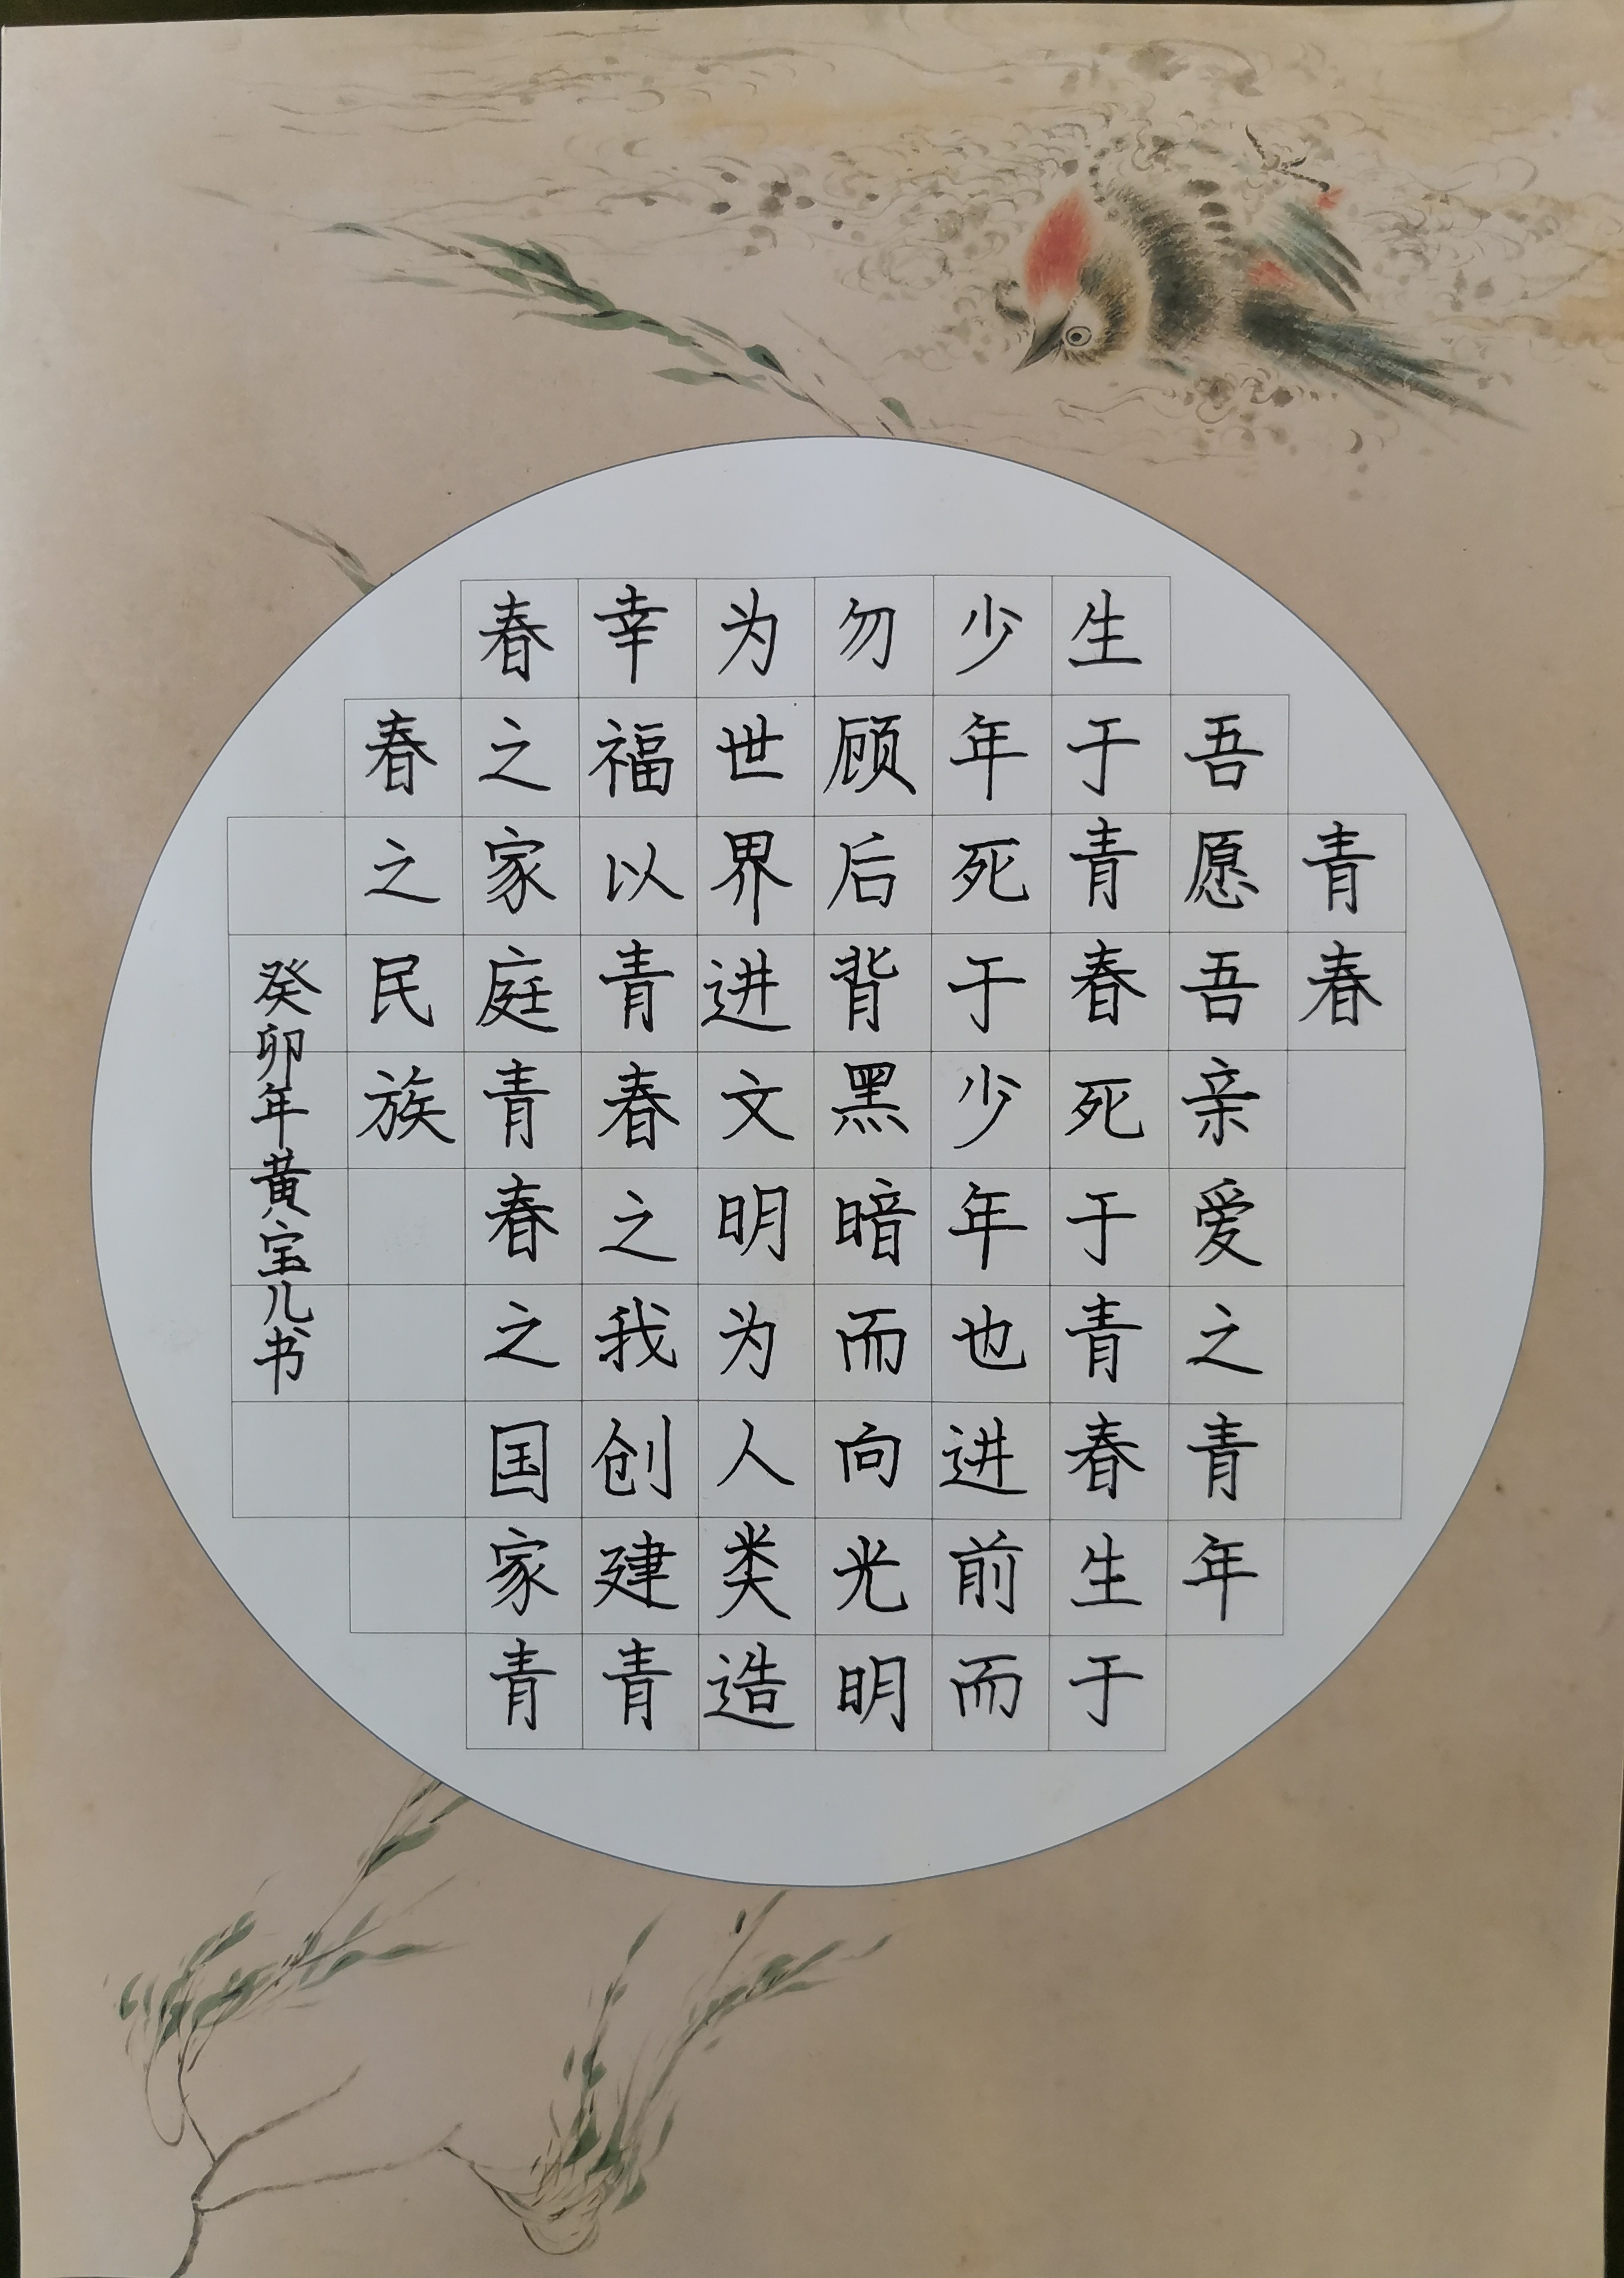 青春
吾愿吾亲爱之青年
生于青春死于青春生于
少年死于少年也进前而
勿顾后背黑暗而向光明
为世界进文明为人类造
幸福以青春之我创建青
春之家庭青春之国家青
春之民族
癸卯年黄宝儿书